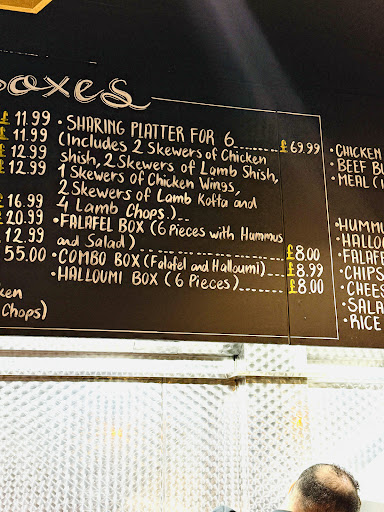 oxes
£ 11.99
£ 11.99
£ 12.99
£ 12.99
£ 16.99
£ 20.99
12.99
55.00
ken
Chops)
• SHARING PLATTER FOR 6 £69.99
(Includes 2 Skewers of Chicken
shish, 2 Skewers of Lamb Shish,
1 Skewers of Chicken Wings,
2 Skewers of Lamb Kofta and
4 Lamb Chops.)
• FALAFEL BOX (6 Pieces with Hummus
and Salad) £8.00
• COMBO BOX (Falafel and Halloumi) £8.99
• HALLOUMI BOX (6 Pieces) £8.00
• CHICKEN
• BEEF BU
• MEAL (
• HUMMU
• HALLO
• FALAFE
• CHIPS
• CHEES
• SALA
• RICE